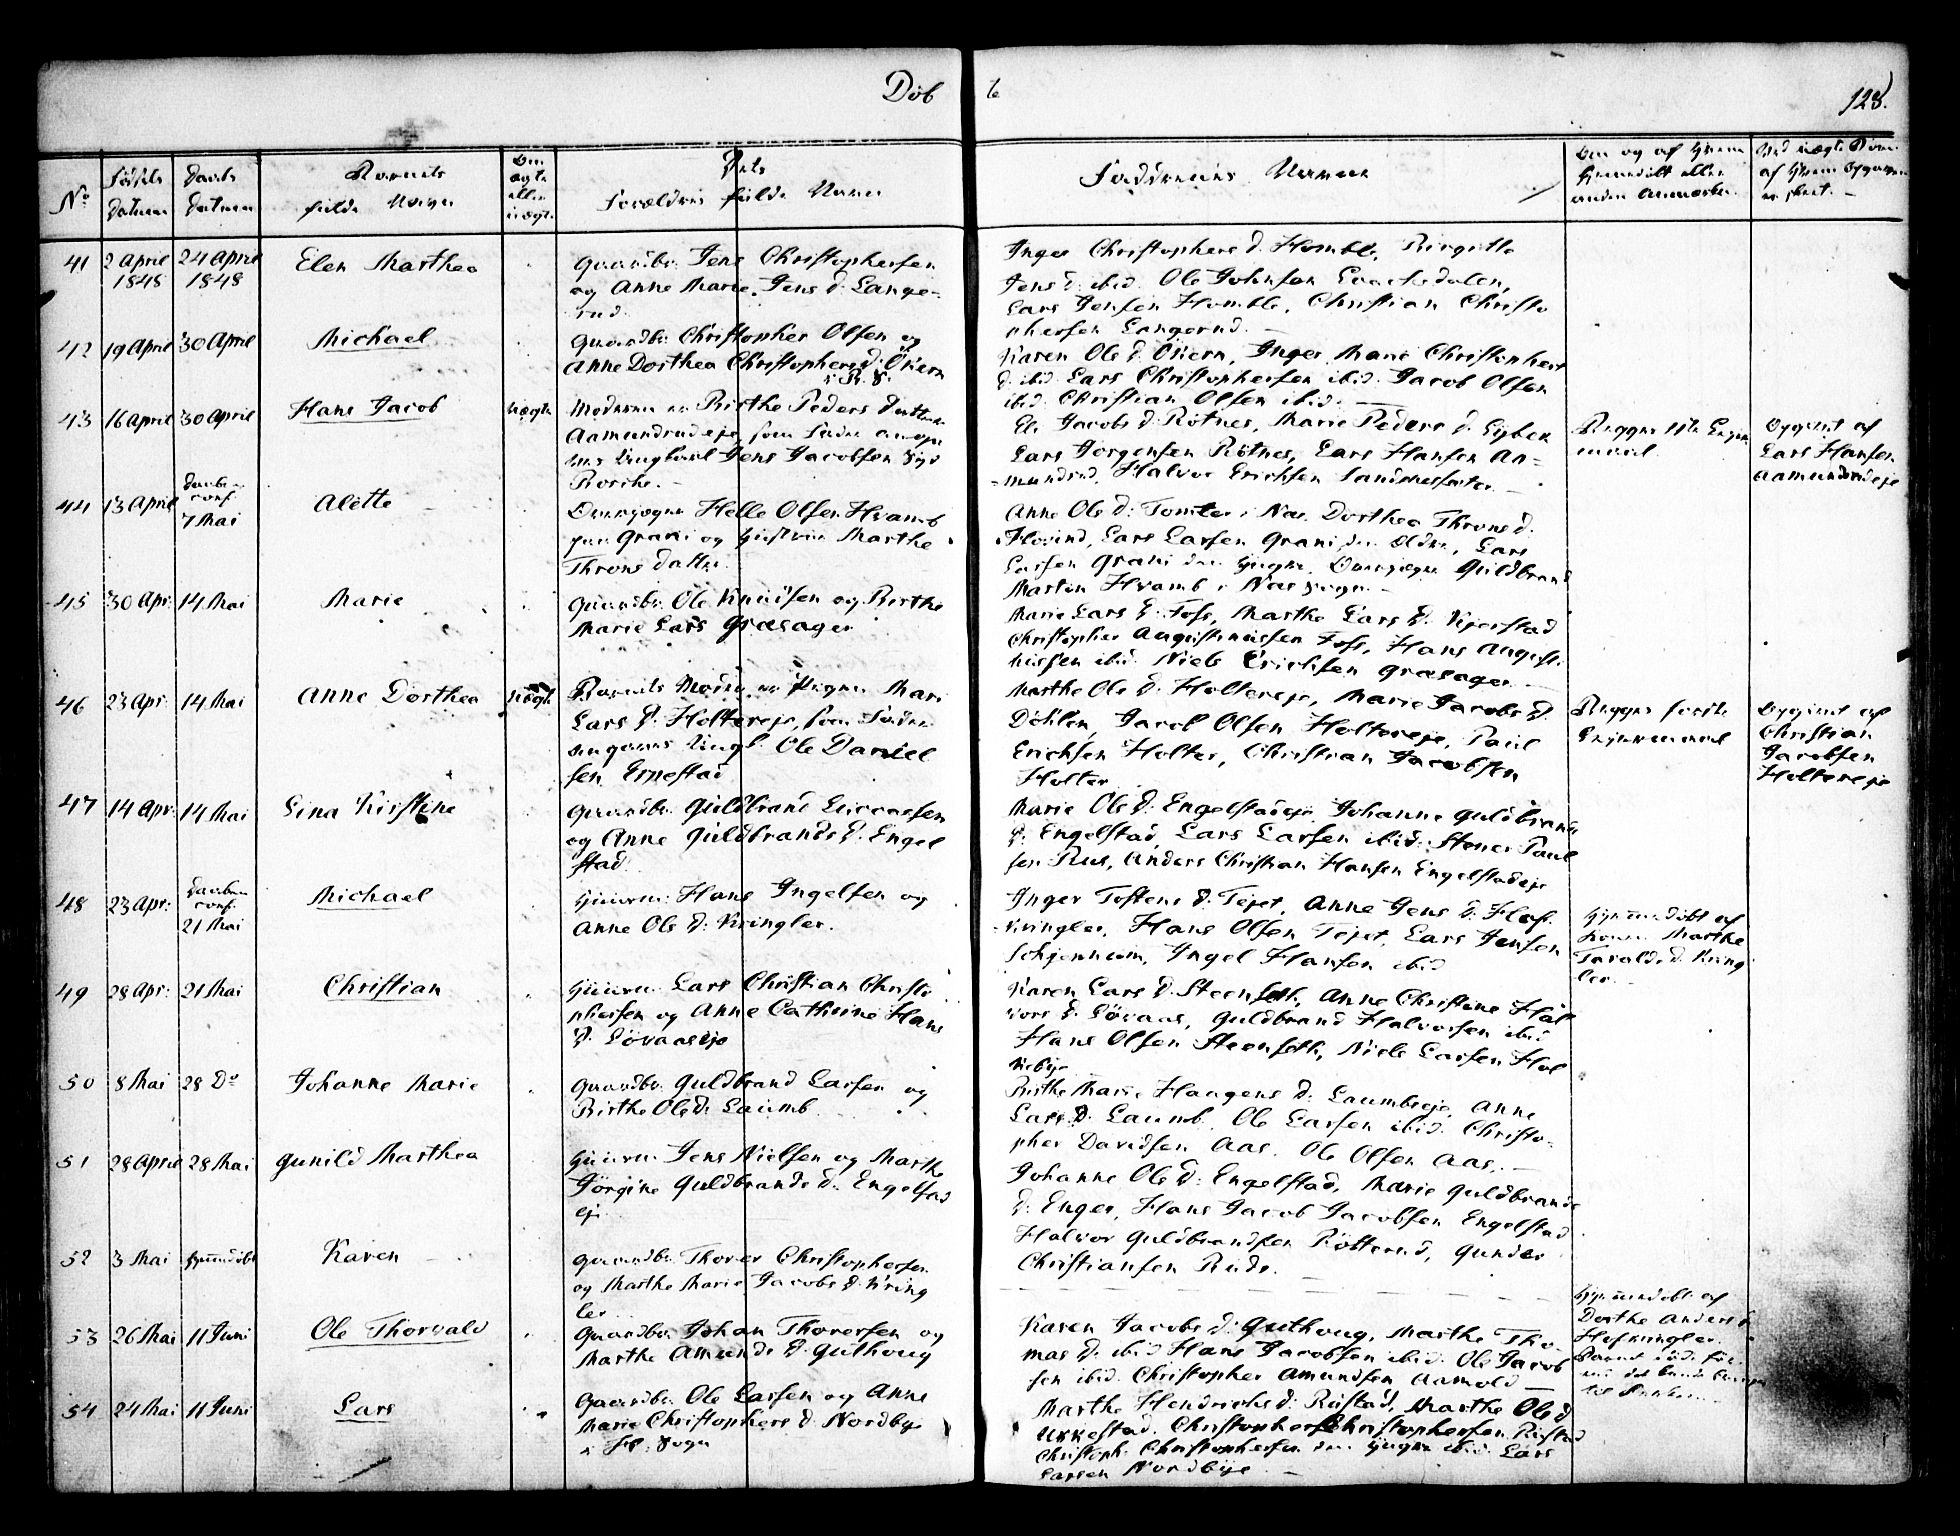 Døb
128.
No
Fødsels Datum
Daabs Datum
Barnets fulde Navn
Om ægte eller uægte
Dets Forældres fulde Navn
Faddernes Navne
41
2 April 1848
24 April 1848
Elen Marthea
Gaardbr. Jens Christophersen
og Anne Marie Jens d. Lange-
rud.
Inger Christophers d. Homble, Birgitte
Jens d. ibid. Ole Johnsen
Lars Jensen Homble, Christian Christo
phersen Langerud.
42
19 April
30 April
Michael
Gaardbr. Christopher Olsen og
Anne Dorthea Christophers d. Økern
Karen Ole d. Økern, Inger Marie Christophers
d. ibid. Lars Christophersen ibid. Jacob Olsen
ibid. Christian Olsen ibid.
43
16 April
30 April
Hans Jacob
uægte
Moderen er Birthe Peders Datter
Aamundrudeje, som Fader
Ungkarl Jens Jacobsen
Jacobs d. Rötnes, Marie Peders d.
Lars Jorgensen Rötnes, Lars Hansen Aa-
mundrud, Halvor Erichsen
Begges 1ste Leier
maal
Opgivet af
Lars Hansen
Aamundrudeje
44
13 April
Daaben conf. 7 Mai
Alette
Helle Olsen Hvamb
Grani og Hustrue Marthe
Throns Datter
Anne Ole d. Tomter i Nas. Dorthea Throns d.
Lars Larsen Grani den Ældre, Lars
Larsen Grani den yngre, Guldbrand
Morten Hvamb i Nas Sogn.
45
30 Apr.
14 Mai
Marie
Gaardbr. Ole Knudsen og Birthe
Marie Lars Græsager
Marie Lars d. Foss, Marthe Lars d. Kjerstad
Christopher Augustinussen Foss, Hans Augusti
nussen ibid. Niels Erichsen Græsager
46
23 Apr.
14 Mai
Anne Dorthea
uægte
Barnets Moder er Pigen Mari
Lars d. Holtereje, som Fader
angives Ungk. Ole Daniel
sen Ernestad
Marthe Ole d. Holtereje, Marie Jacobs d.
Döhlen, Jacob Olsen Holtereje, Paul
Erichsen Holter, Christian Jacobsen
Holter
Begges første
Leiermaal
Opgivet af
Christian
Jacobsen
Holtereje
47
14 Apr.
14 Mai
Lina Kirstine
Gaardbr. Guldbrand
og Anne Guldbrands d. Engel
stad
Marie Ole d. Engelstadeje, Johanne Guldbrands
d. Engelstad, Lars Larsen ibid. Stener Paul
sen Rus, Anders Christian Hansen Engelstadeje
48
23 Apr.
Daaben conf. 21 Mai
Michael
Huusm. Hans Ingelsen og
Anne Ole d. Kringler.
Inger Tostens d. Tejet, Anne Jens d.
Kringler, Hans Olsen Tejet, Lars Jensen
Schjennum, Ingel Hansen ibid
Hjemmedøbt af
Marthe
Kring
ler.
49
28 Apr.
21 Mai
Christian
Huusm. Lars Christian Christo
phersen og Anne Cathrine Hans
d. Lövaaseje
Karen Lars d. Steenseth, Anne Christine Hal
vors d. Lövaas, Guldbrand Halvorsen ibid
Hans Olsen Steenseth, Niels Larsen Hol
50
8 Mai
28 Do
Johanne Marie
Gaardbr. Guldbrand Larsen og
Birthe Ole d. Laumb
Birthe Marie Haugens d. Laumbseje, Anne
Lars d. Laumb. Ole Larsen ibid. Christo-
pher Davidsen Aas. Ole Olsen Aas.
51
28 April
28 Mai
Gunild Marthea
Huusm. Jens Nielsen og Marthe
Jörgine Guldbrands d. Engelstad
ej
Johanne Ole d. Engelstad, Marie Guldbrands
d. Enger, Hans Jacob Jacobsen Engelstad
Halvor Guldbrandsen Rötterud, Gunder
Christiansen Ruds.
52
3 Mai
hjemmedøbt
Karen
Gaardbr. Thorer Christophersen
og Marthe Marie Jacobs d. Kring
ler
Hjemmedøbt af
Dorthe Anders d.
Barnet døde før
end det kunde bringes
til Kirken
53
26 Mai
11 Juni
Ole Thorvald
Gaardbr. Johan Thorersen og
Marthe Amunds d. Guthoug
Karen Jacobs d. Guthoug, Marthe Tho-
mas d. ibid Hans Jacobsen ibid. Ole Jacob
sen ibid. Christopher Amundsen Aamold
54
24 Mai
11 Juni
Lars
Gaardbr. Ole Larsen og Anne
Marie Christophers d. Nordbye
i Sogn
Marthe Hendrichs d. Rustad, Marthe Ole d.
Ukkestad. Christopher Christophersen Rustad
Christoph. Christophersen den yngre ibid. Lars
Larsen Nordbye